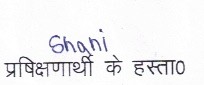 Shani
प्रषिक्षणार्थी के हस्ता0